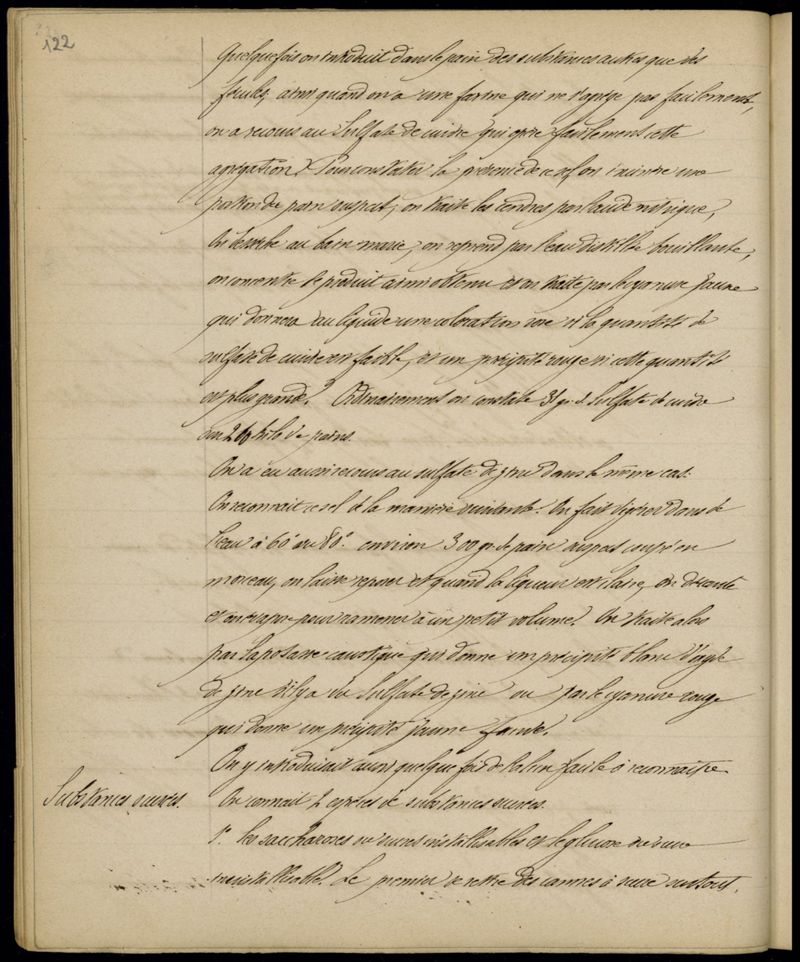 122
Quelquefois on introduit dans le pain des substances autres que des
fécules ainsi quand on a une farine qui ne s'agrège pas facilement,
on a recours au Sulfate de cuivre qui opère facilement cette
agrégation. Pour constater la présence de ce sel, on incinère une
portion du pain suspect; on traite les cendres par l'acide nitrique,
au bain marie, on reprend par l'eau distillée bouillante,
on concentre le produit ainsi obtenu et on traite par le cyanure jaune
qui donnera au liquide une coloration rose si la quantité de
sulfate de cuivre est faible, et un précipité rouge si cette quantité
est plus grande. Ordinairement on constate gr. de Sulfate de cuivre
kilo de pains.
On a eu aussi recours au sulfate de zinc dans le même cas.
On reconnait ce sel de la manière suivante. On fait digérer dans de
l'eau à 60° ou 80° environ 300 gr. de pain suspect coupé en
morceau, on laisse reposer et quand la liqueur est claire, on décante
et on évapore pour ramener à un petit volume. On traite alors
par la potasse caustique qui donne un précipité blanc d'oxyde
de zinc s'il y a du Sulfate de zinc ou par le cyanure rouge
qui donne un précipité jaune foncé.
On y introduisait aussi quelque fois de la facile à reconnaître
Substances sucrées. On connait 2 espèces de substances sucrées.
1° les saccharoses ou sucres cristallisables et le glucose ou sucre
incristallisable. Le premier se retire des cannes à sucre surtout.